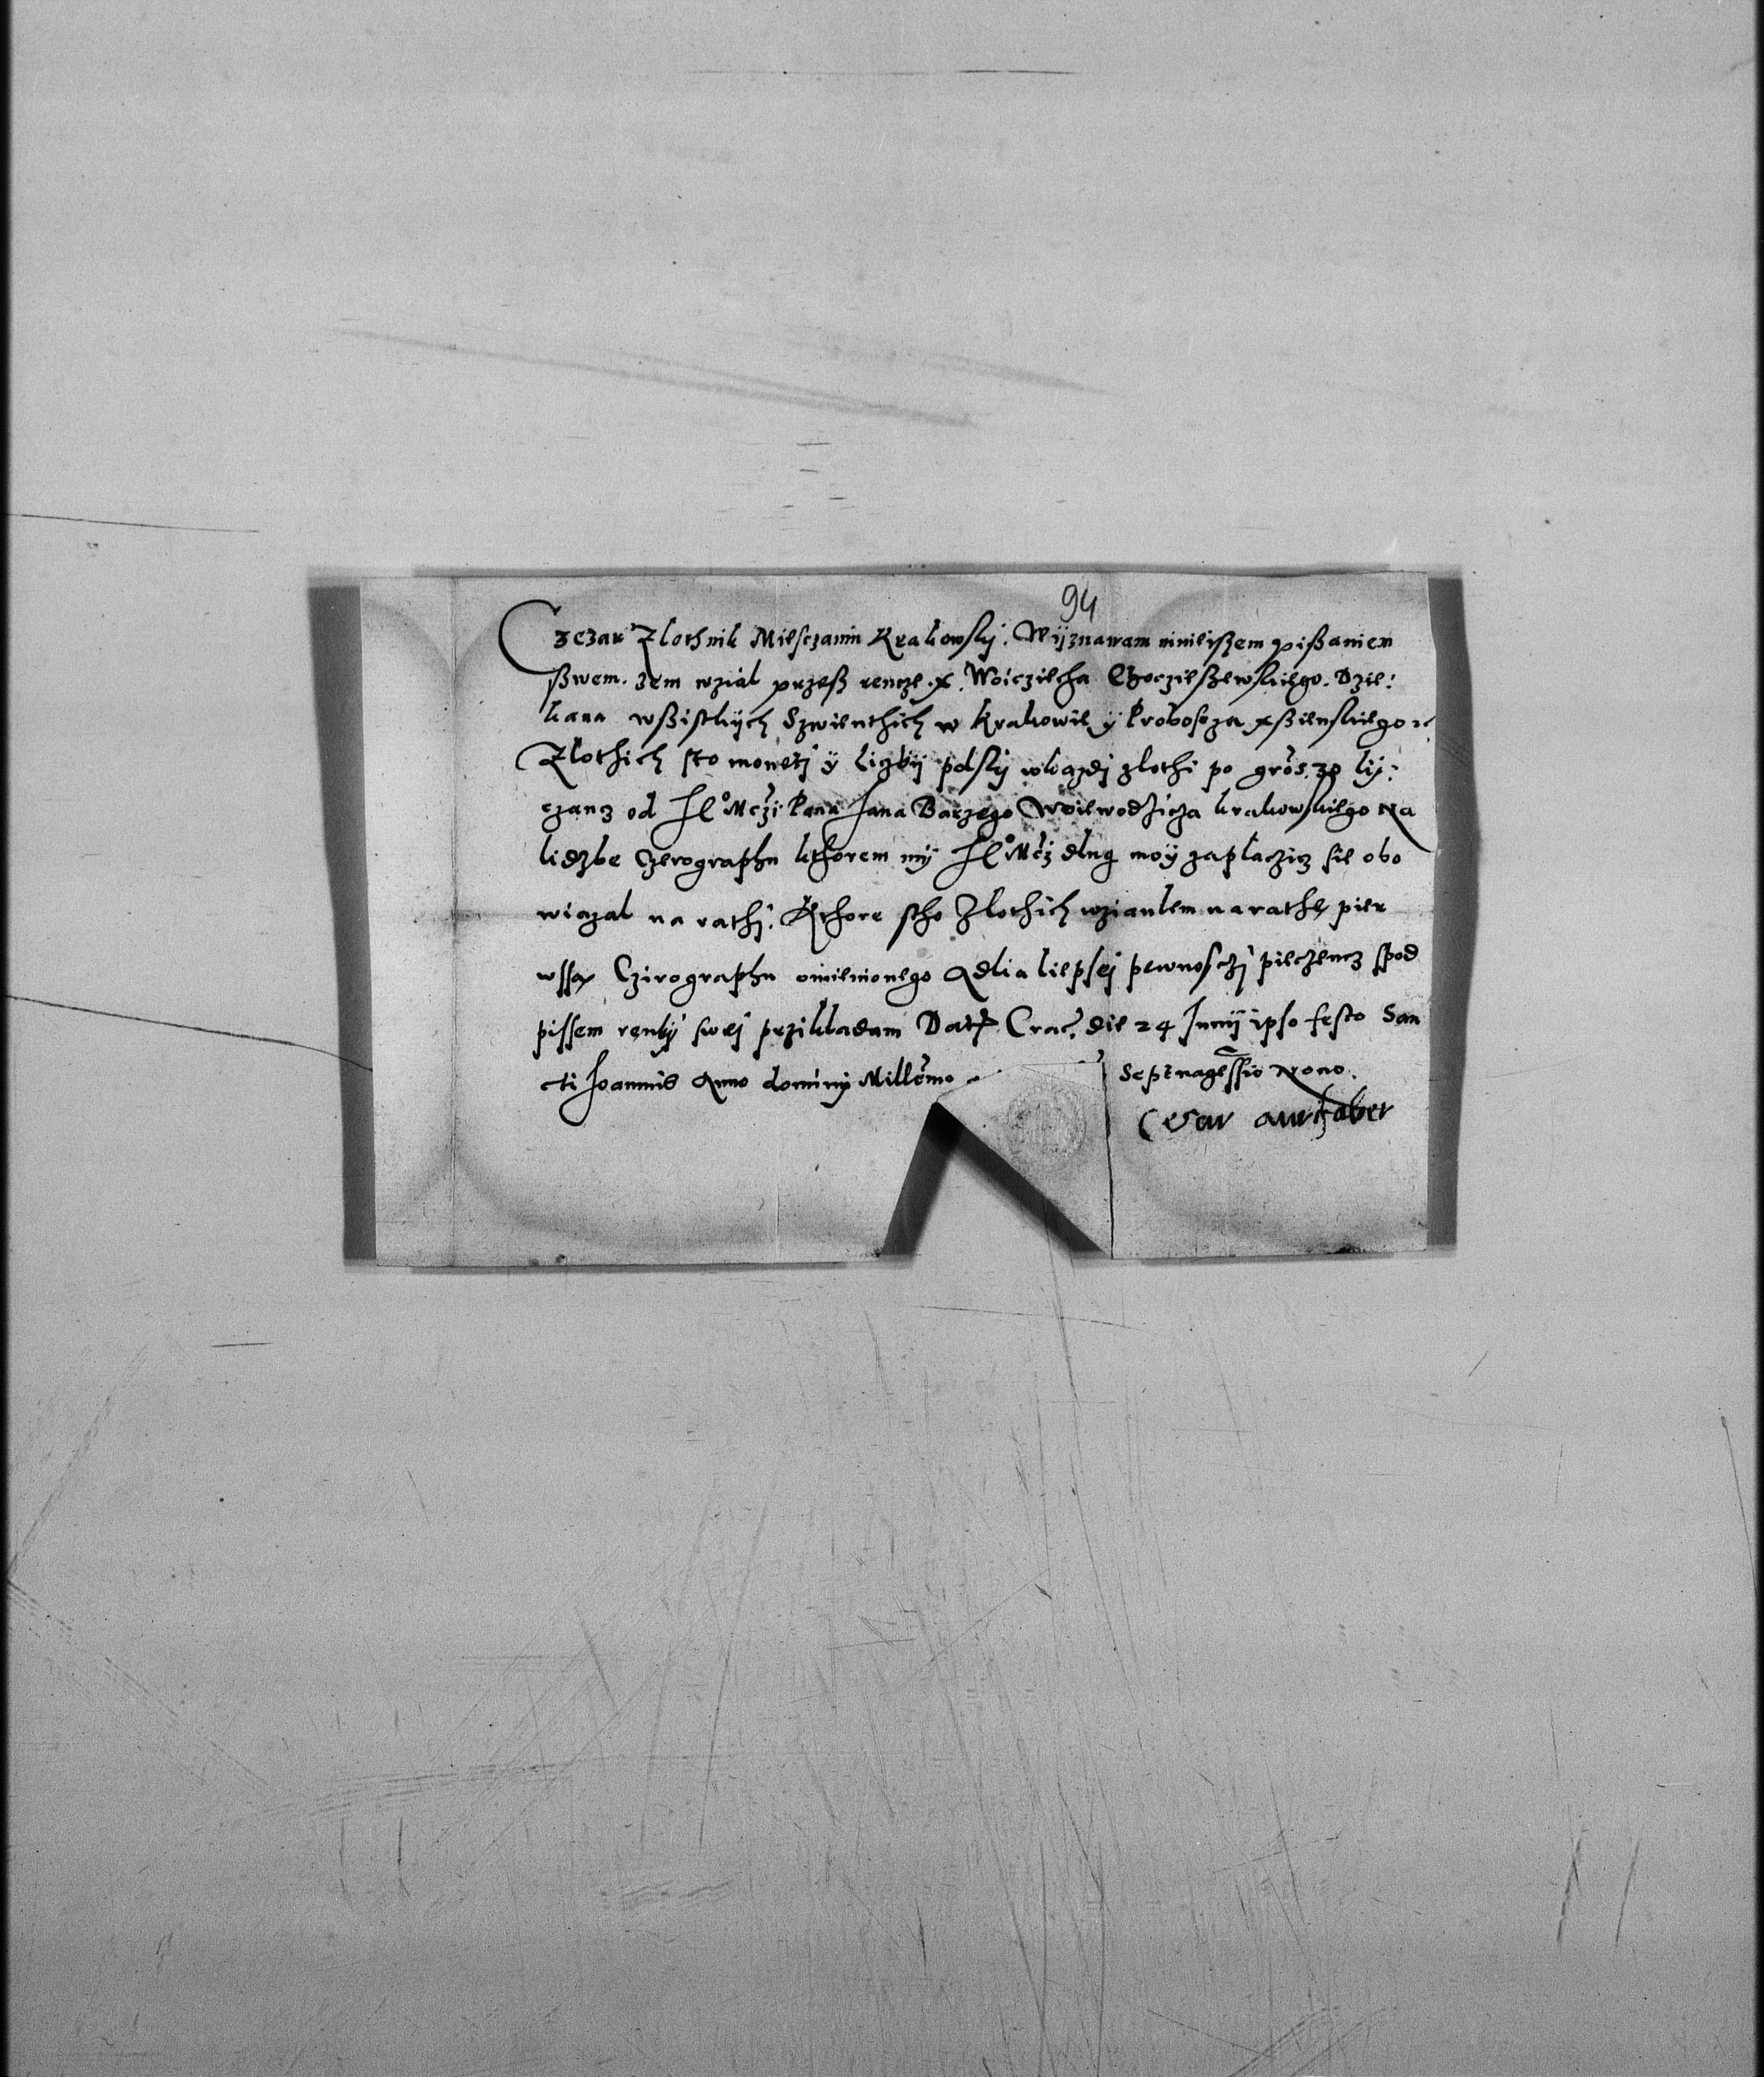 94
Czezar Zlothnik Miesczanin Krakowskj. Wÿznawam ninieiszem pißaniem
ßwem. zem wzial przeß rencze. x. Woicziecha Choczieszewskiego. Dzie:
kana wßistkÿch Szwienthich w krakowie ÿ Proboscza xßienskiego
Zlothich sto monetj ÿ liczbÿ polskÿ wkazdj zlothi po gros. 30 liÿ:
czancz od Je° Mczi Pana Jana Barzego Woiewodzicza krakowskiego Na
liczbe Czerographu kthorem mÿ Je° Mcz dlug moÿ zaplaczicz sie obo
wiazal na rathj. Kthore stho Zlothich wzianlem na rathe pier
wssa Czirographu omienionego Adlia liepsej pewnosczj pieczencz spod
pissem renkÿ swej przikladam Dat Crac. die 24 Junij ipso festo San
cti Joannis Anno dominj Millemo Septuagessio Nono.
Cesar aurifaber